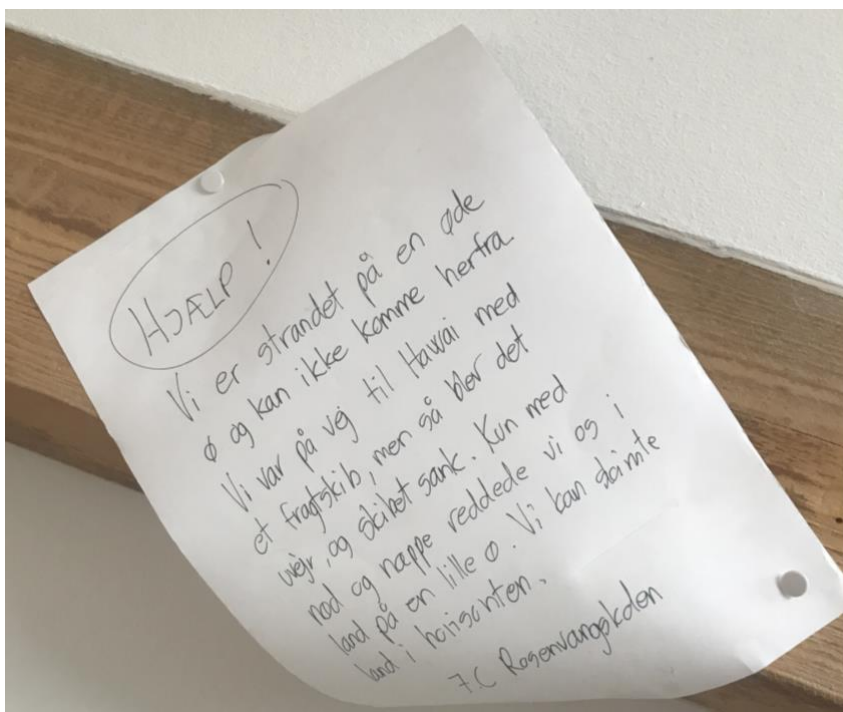 HJÆLP!
Vi er strandet på en øde
ø og kan ikke komme herfra
Vi var på vej til Hawai med
et fragtskib, men så blev det
uvejr, og skibet sank. Kun med
nød og næppe reddede vi os i
land på en lille ø. Vi kan skimte
land i horisonten.
7.C Rosenvangskolen